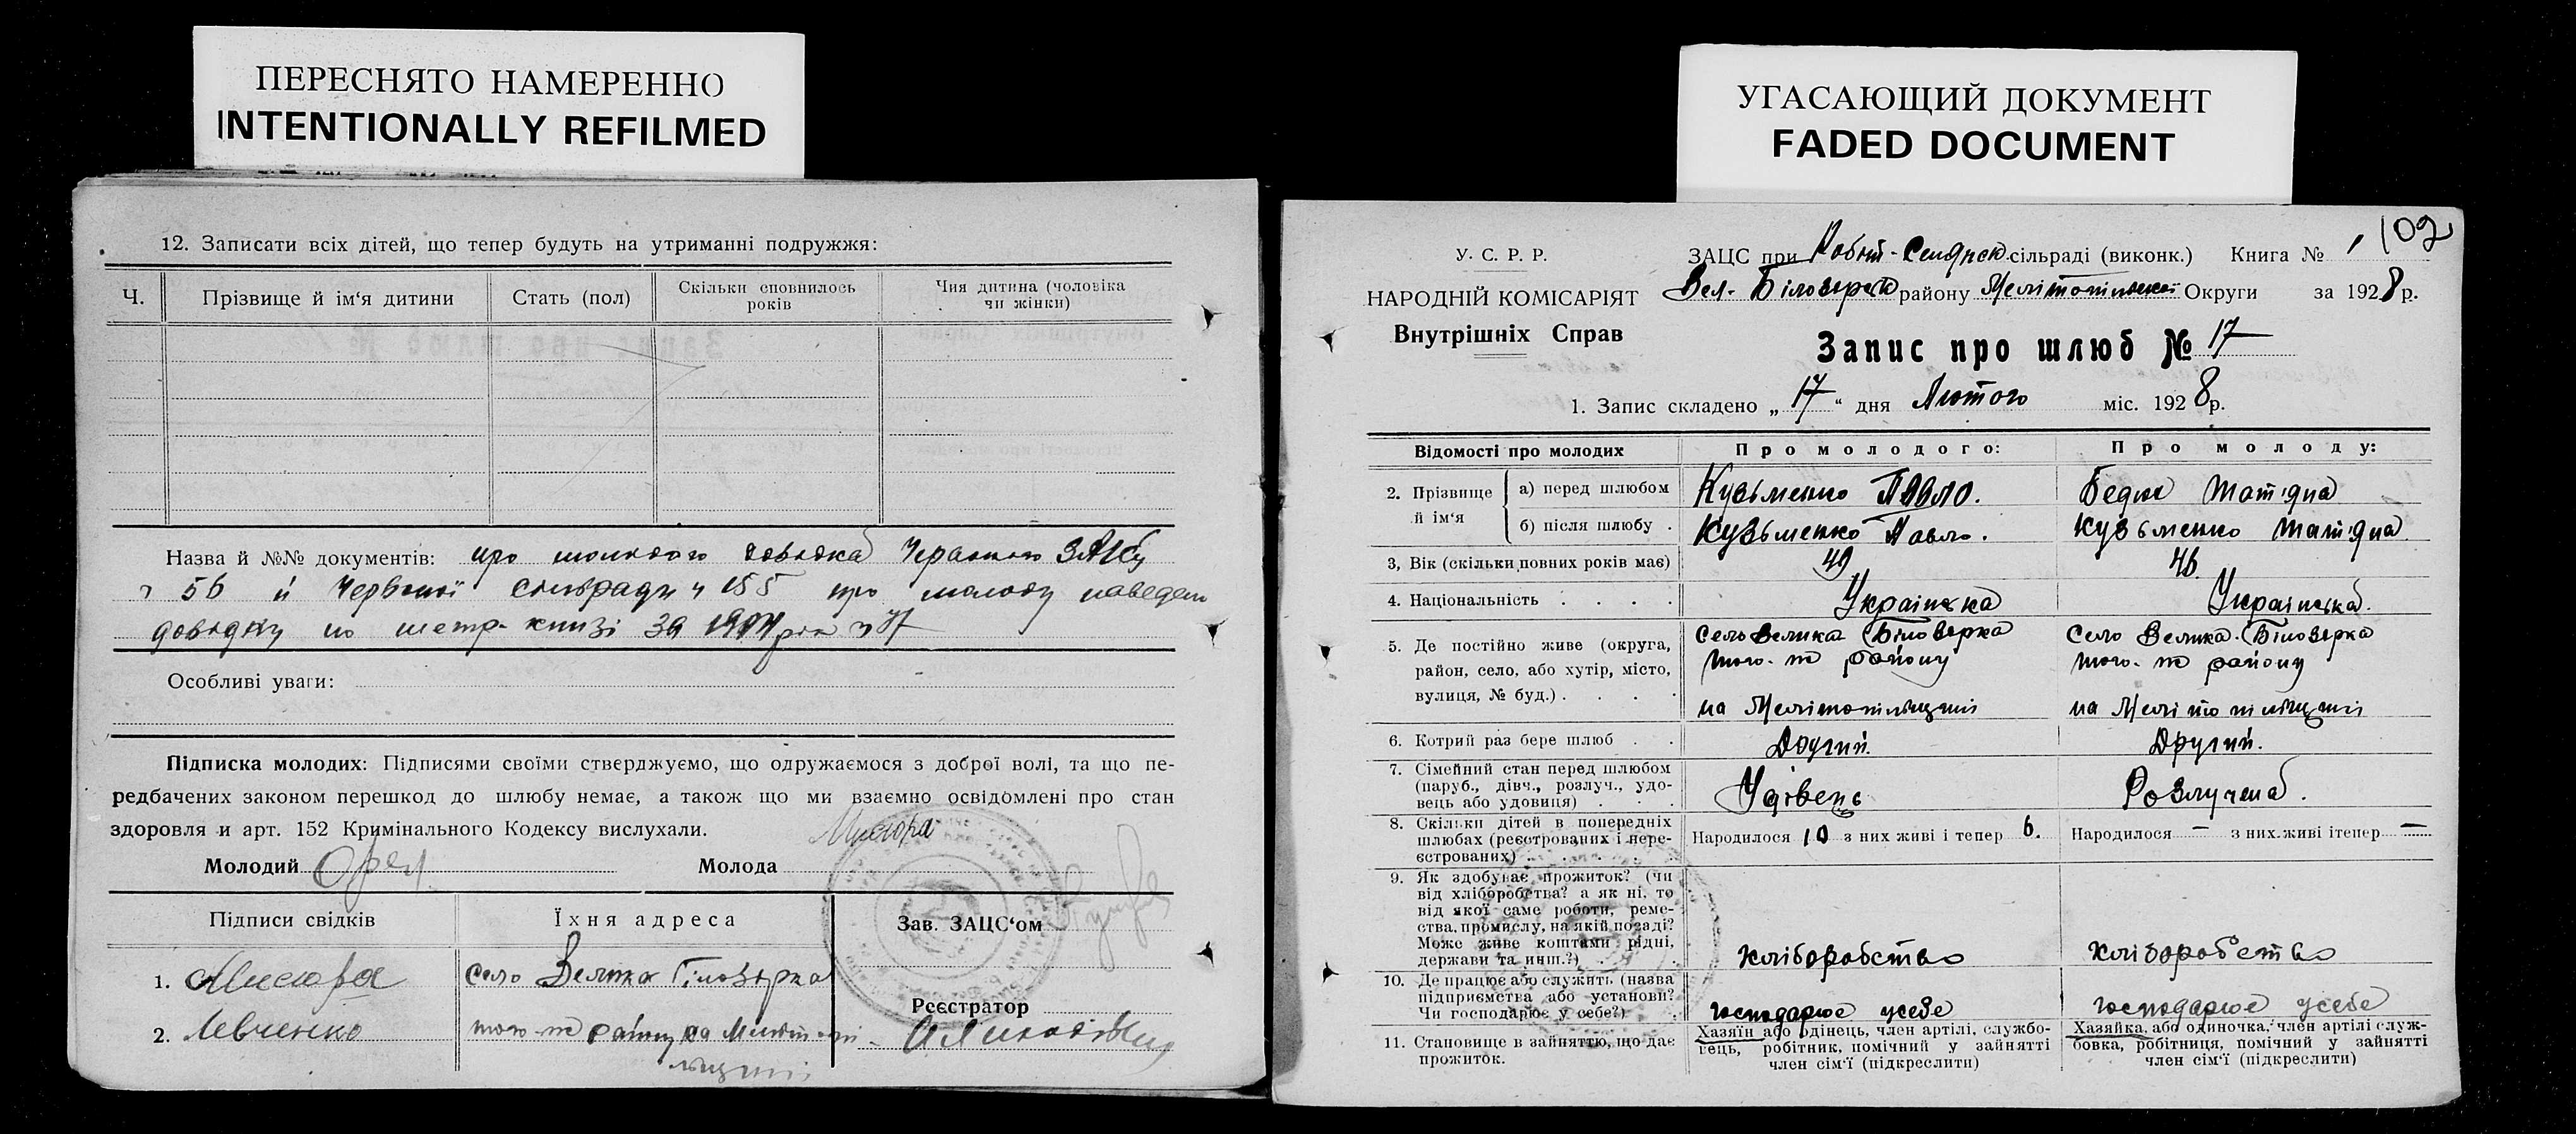 ПЕРЕСНЯТО НАМЕРЕННО
INTENTIONALLY REFILMED
12. Записати всіх дітей, що тепер будуть на утриманні подружжя:
Ч.
Прізвище й ім‘я дитини
Стать (пол)
Скільки сповнилось років
Чия дитина (чоловіка чи жінки)
Назва й №№ документів: про молодого довідка ЗАГСу
56 й Червоної сільради 155 про молоду наведено
довідку по метр. книзі за рік
Особливі уваги:
Підписка молодих: Підписями своїми стверджуємо, що одружаємося з доброї волі, та що пе-
редбачених законом перешкод до шлюбу немає, а також що ми взаємно освідомлені про стан
здоровля и арт. 152 Кримінального Кодексу вислухали.
Молодий
Молода
Підписи свідків
Їхня адреса
Зав. ЗАЦС‘ом
1. село Велика Білозерка
Реєстратор
2. Левченко того-ж району на
УГАСАЮЩИЙ ДОКУМЕНТ
FADED DOCUMENT
102
У. С. Р. Р.
НАРОДНІЙ КОМІСАРІЯТ
Внутрішніх Справ
ЗАЦС при Робіт-Селянск. сільраді (виконк.) Книга № 1
Вел-Білозерск району Мелітопільської Округи за 1928 р.
Запис про шлюб № 17
1. Запис складено „ 17 “ дня Лютого міс. 1928 р.
Відомості про молодих
Про молодого:
Про молоду:
2. Прізвище й ім‘я
а) перед шлюбом Кузьменко Павло. Бедж Мотрона
б) після шлюбу . Кузьменко Павло. Кузьменко
3, Вік (скільки повних років має) 49 46.
4. Національність . . . . Українська Українська.
5. Де постійно живе (округа, район, село, або хутір, місто, вулиця, № буд.) . . . .
село Велика Білозерка того-ж району на Мелітопільщині
Село Велика-Білозерка того-ж району на Мелітопільщині
6. Котрий раз бере шлюб . . Другий. Другий.
7. Сімейний стан перед шлюбом (паруб., дівч., розлуч., удо-
вець або удовиця) . . . Удівець Розлучена.
8. Скільки дітей в попередніх шлюбах (реєстрованих і нере-
єстрованих) . . . . .
Народилося 10 з них живі і тепер 6. Народилося – з них живі ітепер –
9. Як здобуває прожиток? (чи від хліборобства? а як ні, то
від якої саме роботи, реме-
ства, промислу, на якій посаді?
Може живе коштами рідні,
держави та инш.?) . .
хліборобство хліборобство
10. Де працює або служить (назва
підприємства або установи?
Чи господарює у себе?)
господарює усебе господарює усебе
11. Становище в зайняттю, що дає
прожиток.
Хазяїн або одінець, член артілі, службо-
вець, робітник, помічний у зайнятті
член сім‘ї (підкреслити)
Хазяйка, або одиночка, член артілі служ-
бовка, робітниця, помічний у зайнятті
член сім‘ї (підкреслити)